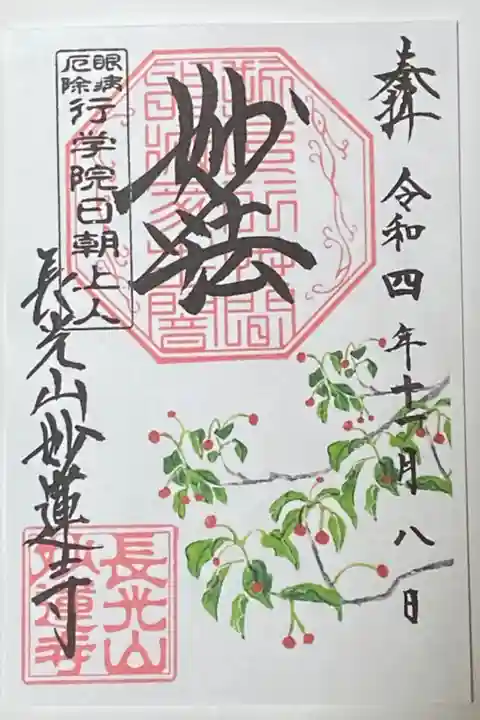 奉拝 令和四年十一月八日
妙法
眼病
厄除
行学院日朝上人
長光山妙蓮寺
長光山
妙蓮寺